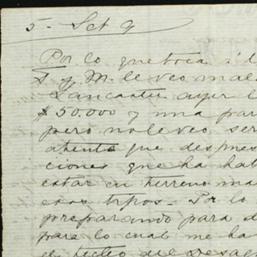 5 - Set 9
Por lo que toca á d
S. y M. le veo mala
Lancaster ayer l
$ 50.000 y una par
pero no le veo ser
ahenta que despues
ciones que ha hab
estar en terreno ma
esos tipos. Por lo
preparando para d
para lo cual me ha
el